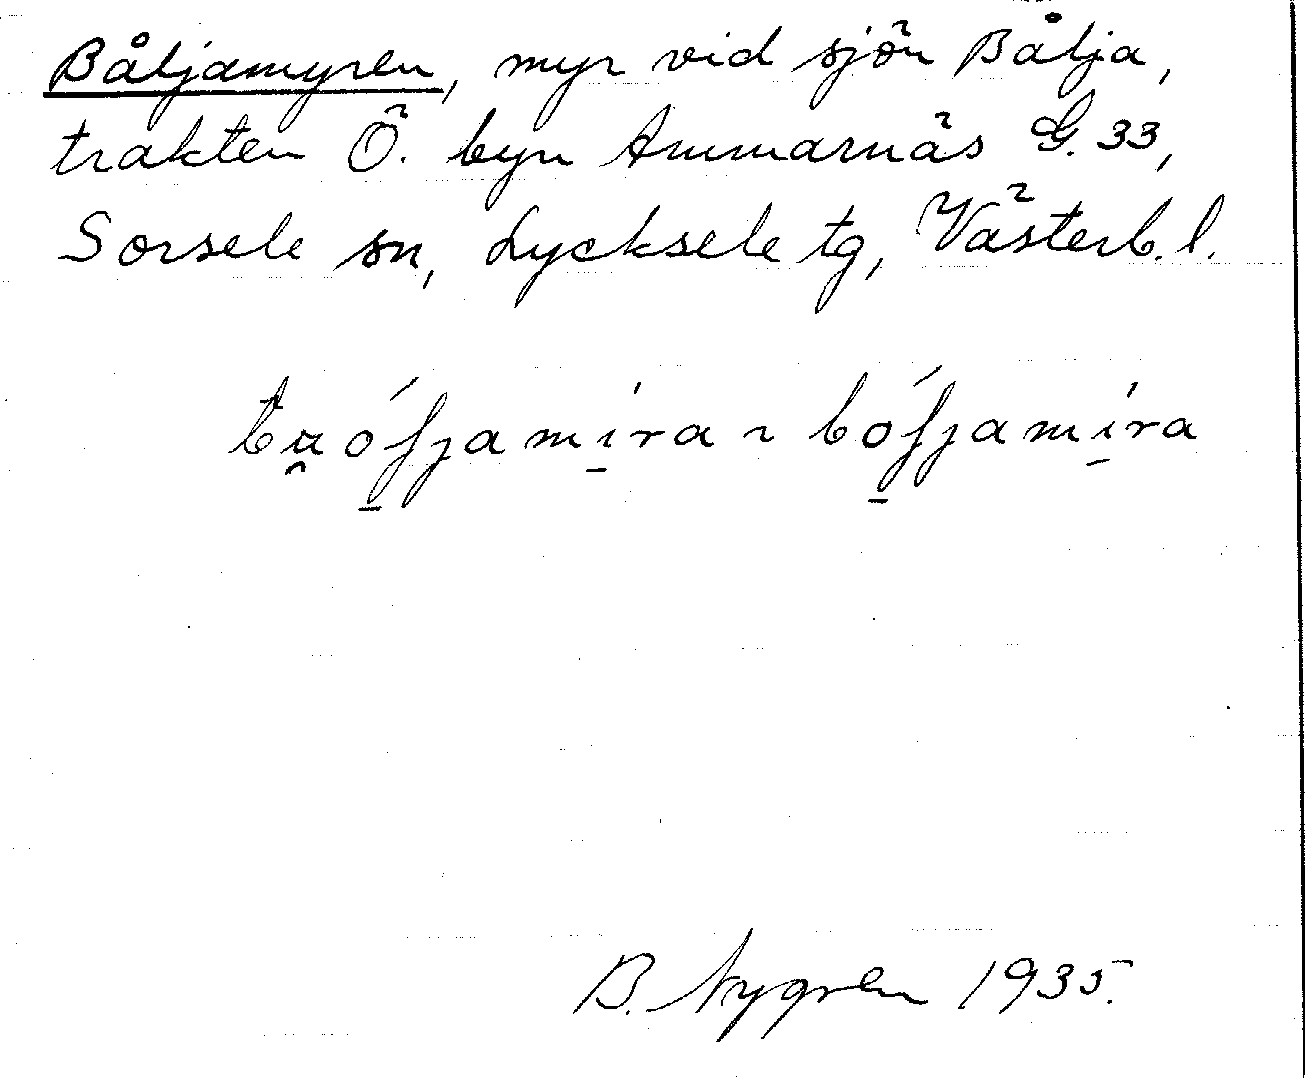 Båljamyren, myr vid sjön Bålja,
trakten Ö. byn Ammarnäs G. 33,
Sorsele sn, Lycksele tg, Västerb. l.
B. Nygren 1935.